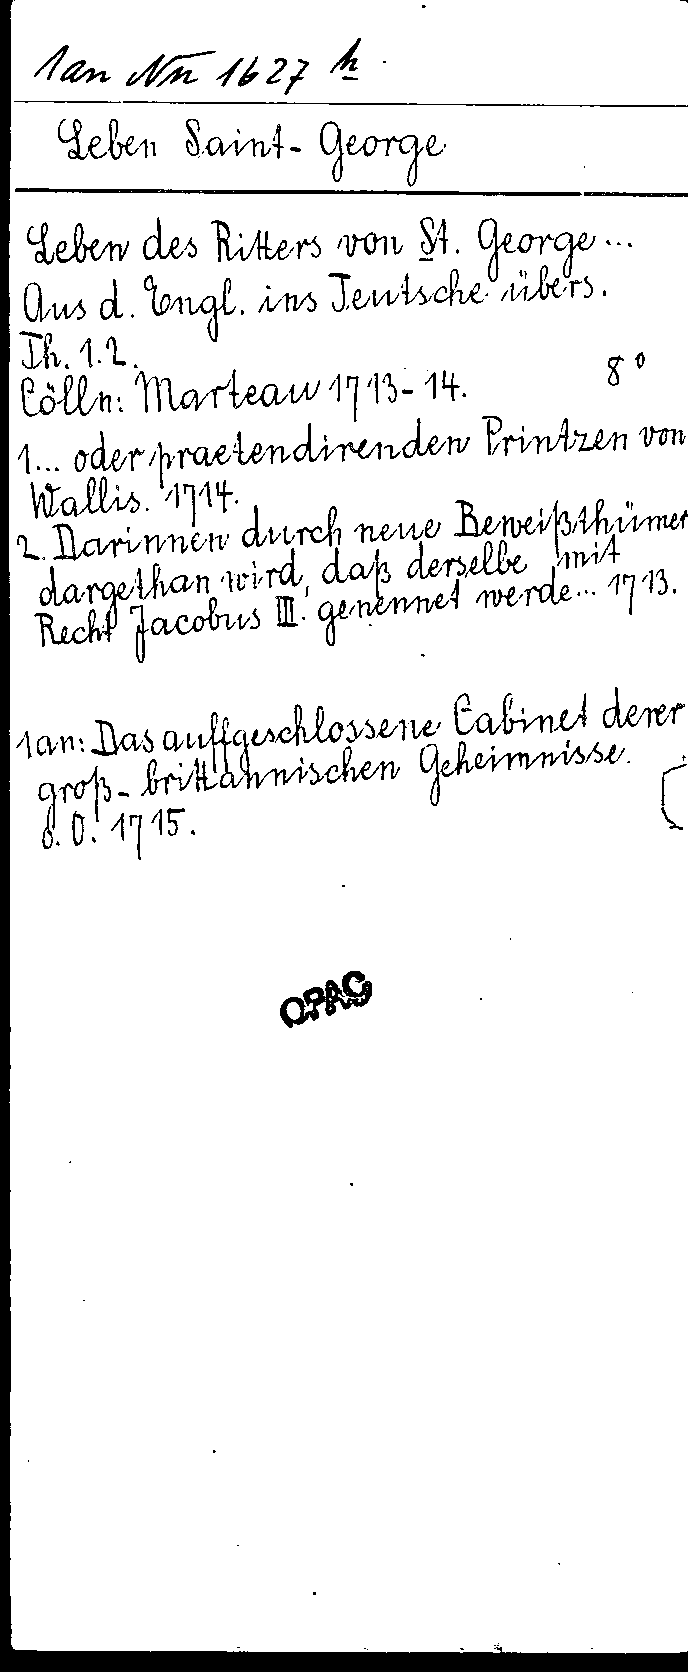 1an Nn 1627 h
Leben Saint-George
Leben des Ritters von St. George...
Aus d. Engl. ins Teutsche übers.
Th. 1.2.
8°
Cölln: Marteau 1713-14.
1... oder praetendirenden Printzen von
Wallis. 1714.
2. Darinnen durch neue Beweißthümer
dargethan wird, daß derselbe mit
Recht Jacobus III. genennet werde... 1713.
1an: Das auffgeschlossene Cabinet derer
groß-brittannischen Geheimnisse.
o. O. 1715.
OPAC